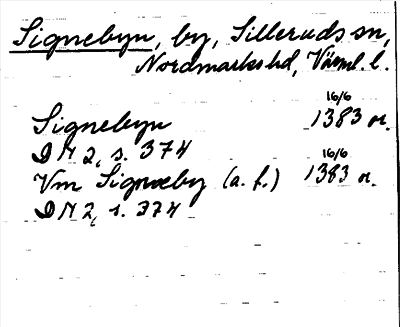 Signebyn, by, Silleruds sn,
Nordmarks hd, Värml. l.
Signebyn 16/6 1383 or.
DN 2, s. 374
Vm Signæby (a. f.) 16/6 1383 or.
DN 2, s. 374